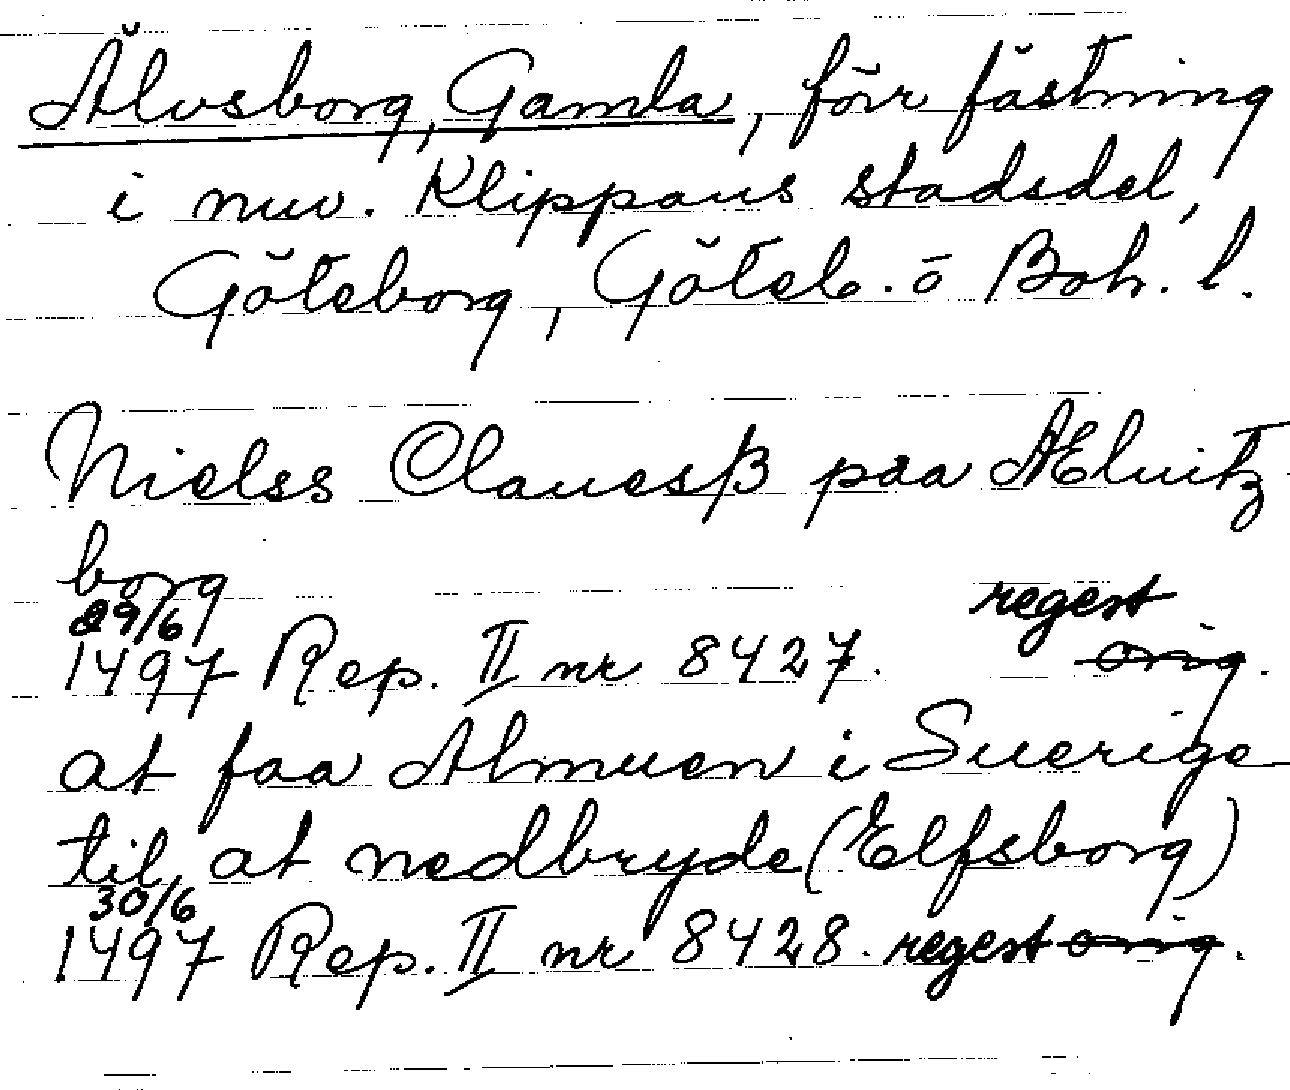 Älvsborg, Gamla, förr fästning
i nuv. Klippans stadsdel,
Göteborg, Göteb. o Boh. l.
Nielss Clauesß paa Æluitz
borg
29/6
1497 Rep. II nr 8427. regest orig.
at faa Almuen i Suerige
til at nedbryde (Elfsborg)
30/6
1497 Rep. II nr 8428. regest orig.